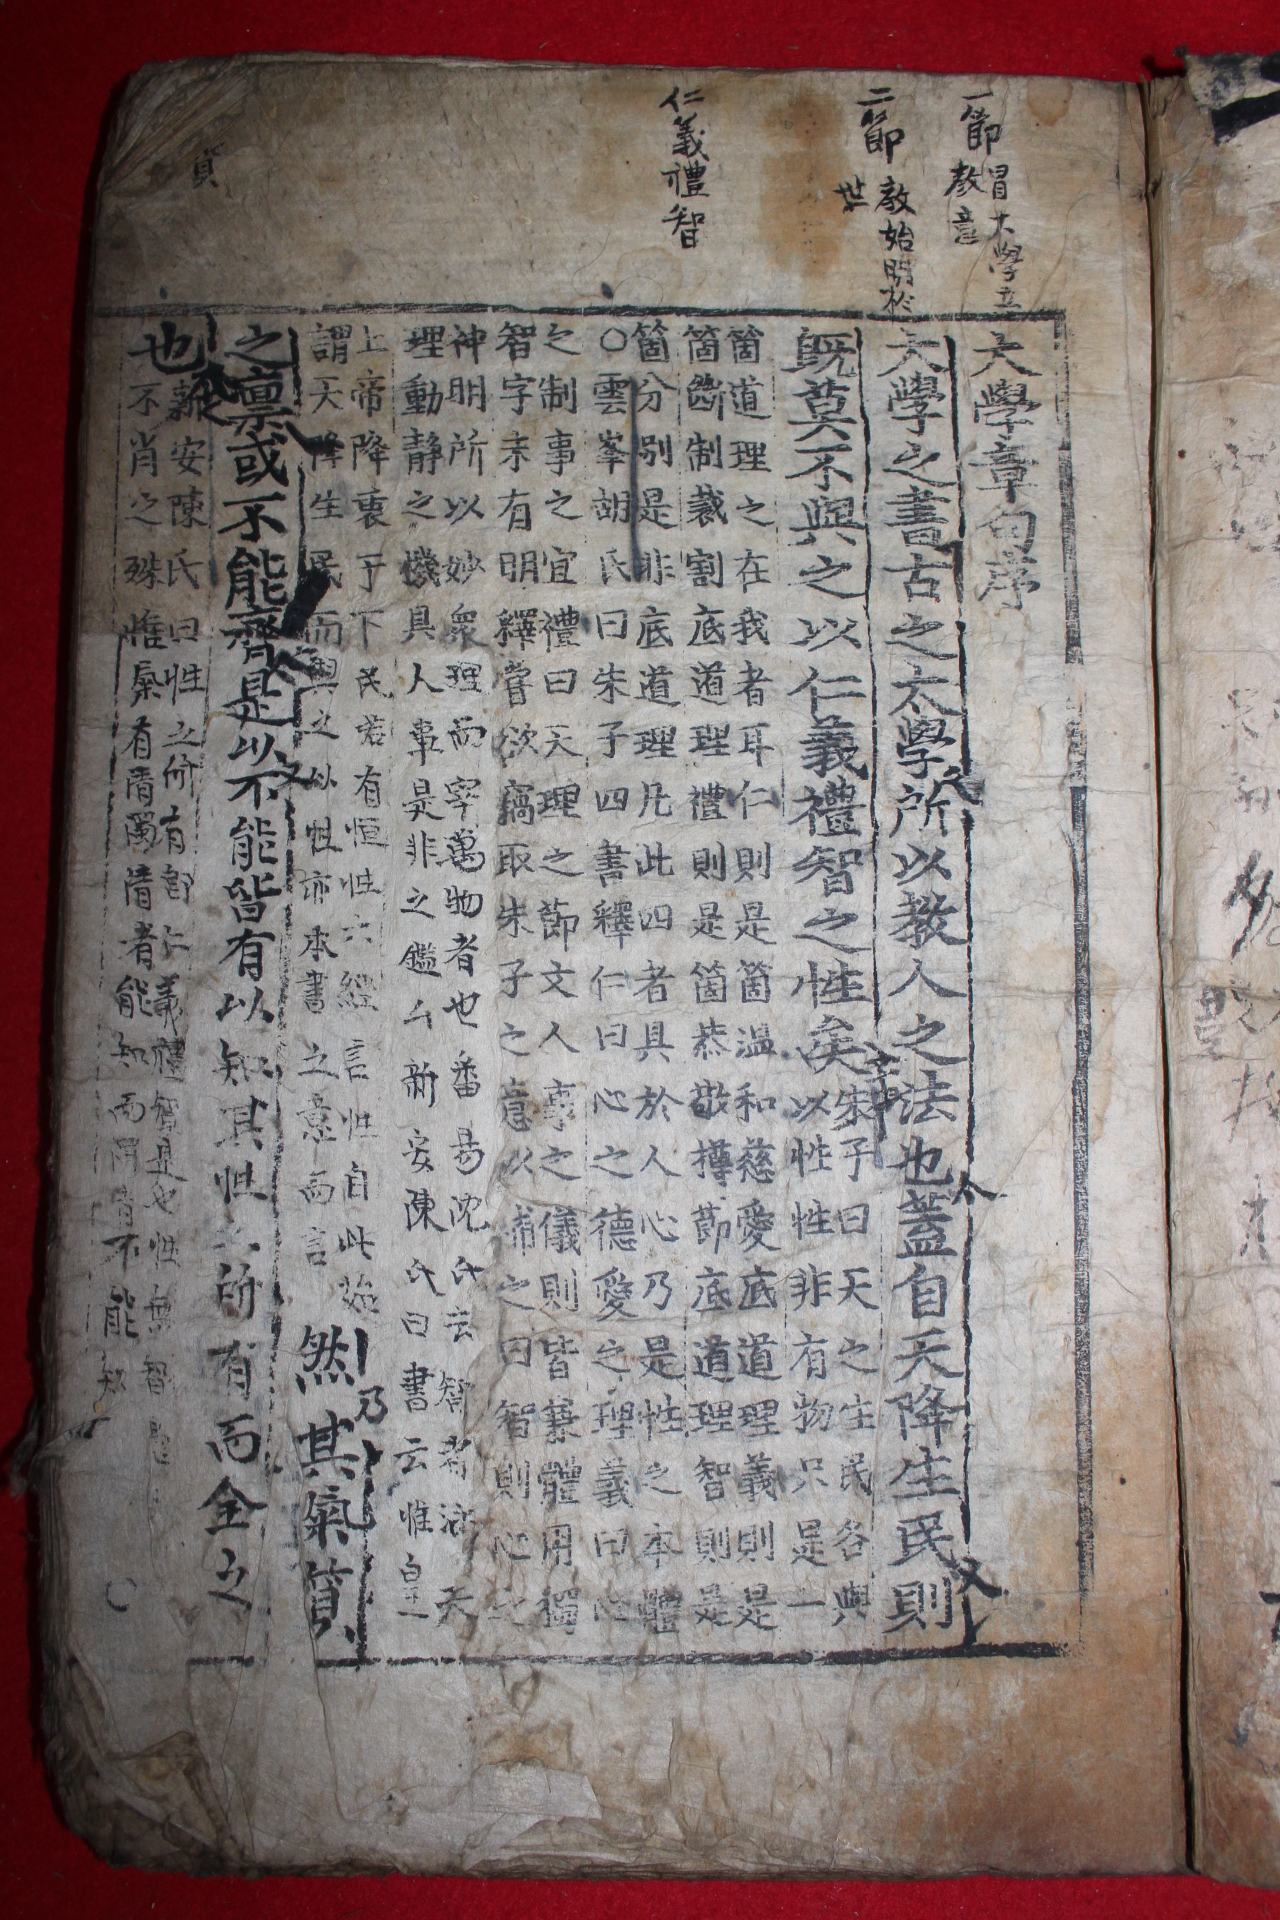 一節 冒大學立
教意
二節 教始明於
世
仁義禮智
質
大學章句序
大學之書古之大學所以教人之法也蓋自天降生民則
既莫不與之以仁義禮智之性矣
朱子曰天之生民各與
以性性非有物只是一
箇道理之在我者耳仁則是箇温和慈愛底道理義則是
箇斷制裁割底道理禮則是箇恭敬撙節底道理智則是
箇分別是非底道理凡此四者具於人心乃是性之本體
○雲峯胡氏曰朱子四書釋仁曰心之德愛之理義曰心
之制事之宜禮曰天理之節文人事之儀則皆兼體用獨
智字未有明釋嘗欲竊取朱子之意以補之曰智則心之
神明所以妙衆理而宰萬物者也番昜沈氏云智者涵天
理動靜之機具人事是非之鑑厶新安陳氏曰書云惟皇
上帝降衷于下民若有恒性六經言性自此始
謂天降生民而與之以性亦本書之意而言
然其氣質
之稟或不能齊是以不能皆有以知其性之所有而全之
也
新安陳氏曰性之所有卽仁義禮智是也性無智愚
不肖之殊惟氣有清濁清者能知而濁者不能知